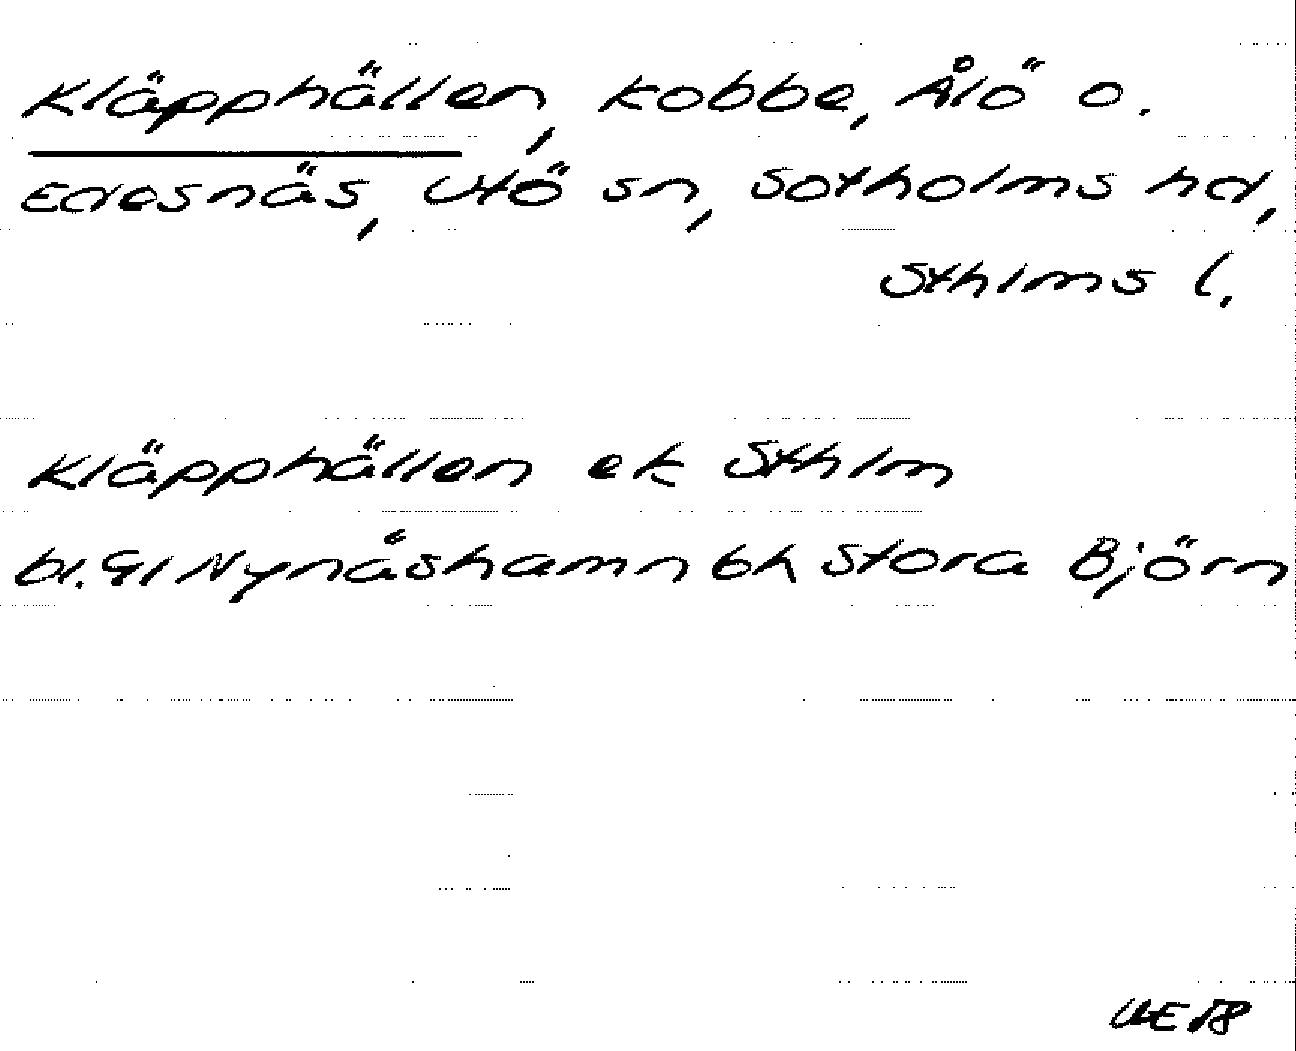 Kläpphällen, kobbe, Ålö o.
Edesnäs, Utö sn, Sotholms hd,
Sthlms l.
Kläpphällen ek Sthlm
bl. 91 Nynäshamn bh Stora Björn